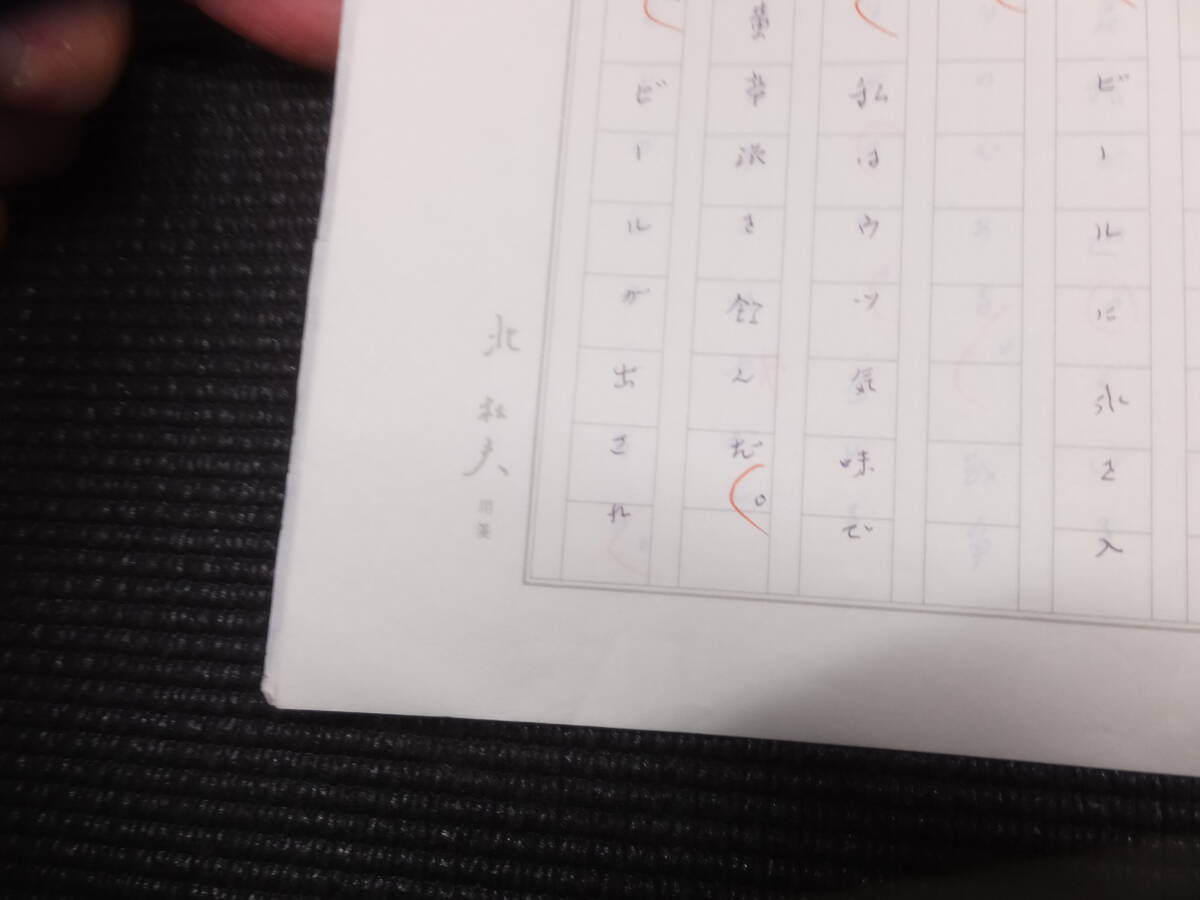 ビールに氷を入
私はウツ気味で
黄帝液を飲んだ。
ビールが出され
北杜夫用箋